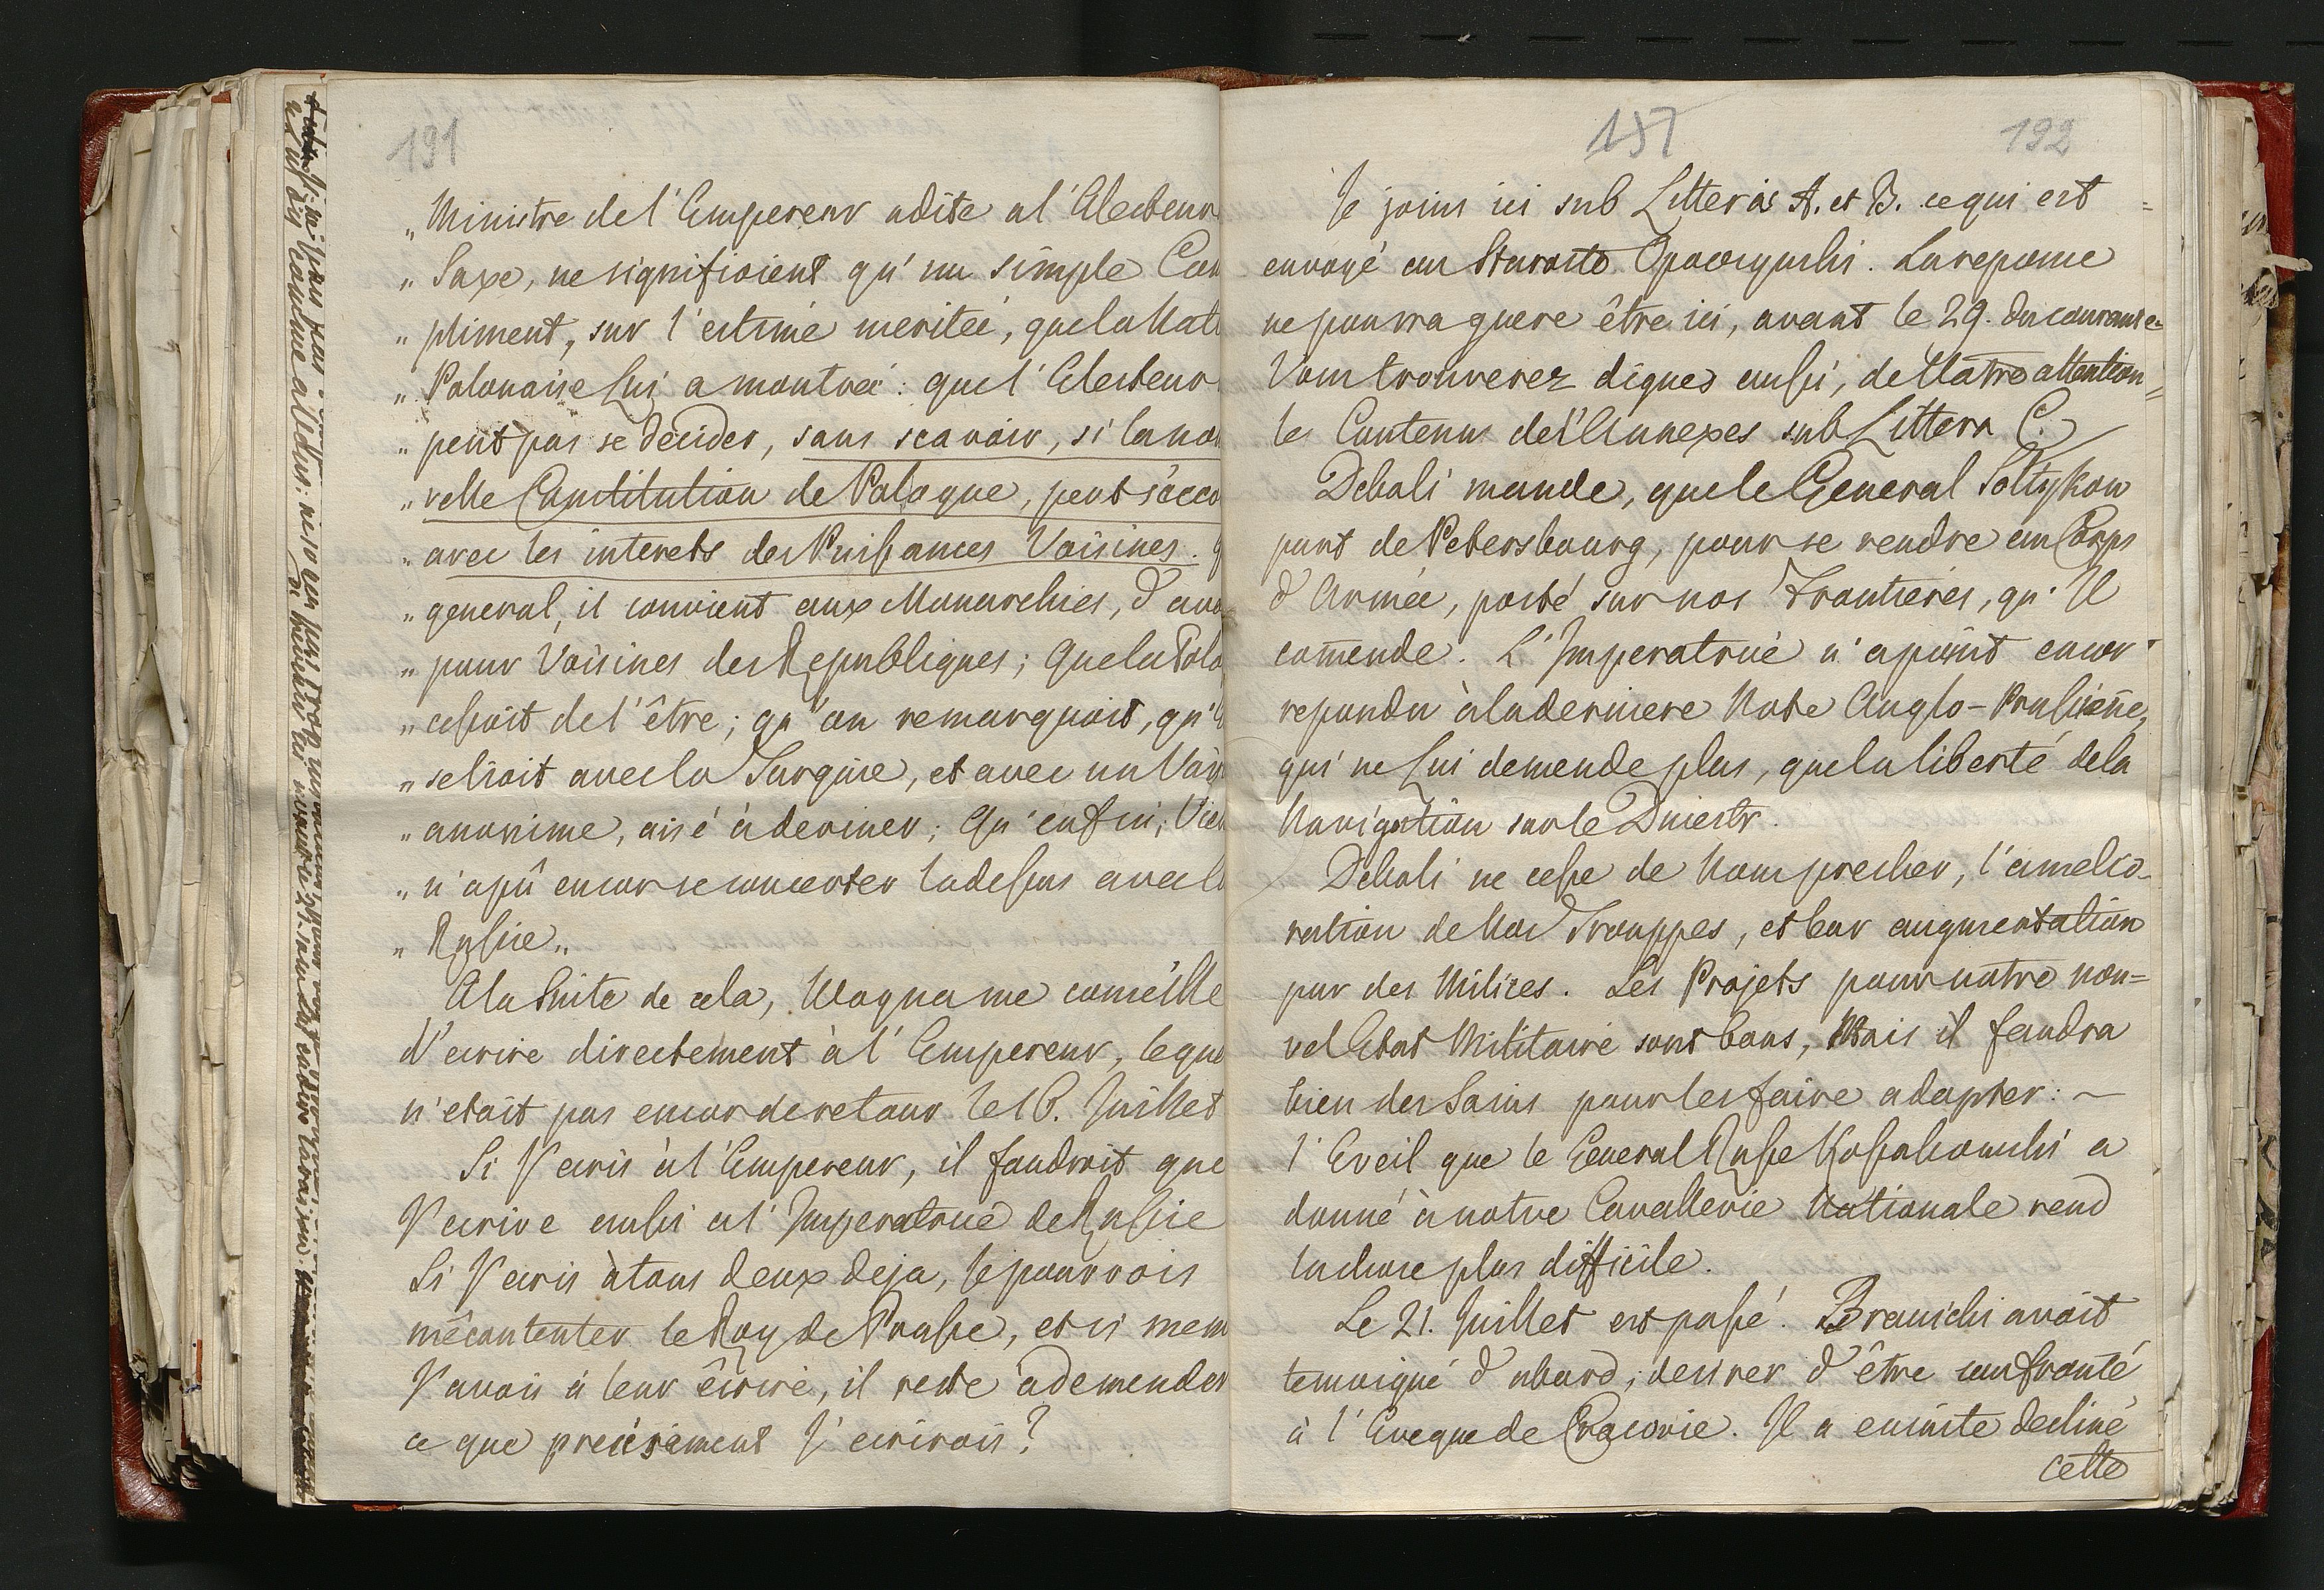 191
„ Ministre de l'Empereur a dite a l'Electeur
„ Saxe, ne signifioient qu'un simple Com
„ pliment, sur l'estime meritée, que la Nati
„ Polonaise Lui a montreé: que l'Electeur
„ peut pas se decider, sans scavoir, si la nou
„ velle Constitution de Pologne, peut s'acco
„ avec les interets des Puissances Voisines.
„ general, il convient aux Monarchies, d'avo
„ pour Voisines des Republiques; Que la Polo
„ cessoit de l'être; qu'on remarquoit, qu'
„ se lioit avec la Turquie, et avec un Vois
„ anonime, aisé à deviner; Qu'enfin; Vien
„ n'a pû encor se concerter la dessus avec l
„ Russie„
A la Suite de cela, Woyna me conseille
d'ecrire directement à l'Empereur, leque
n'etait pas encor de retour le 16. Juillet
Si J'ecris à l'Empereur, il faudroit que
J'ecrive aussi a l'Imperatrice de Russie
Si J'ecris à tous deux deja, Je pourrois
mécontenter le Roy de Prusse, et si mem
J'avois à leur écrire, il reste à demender
ce que precisément J'ecrirois?
157
192
Je joins ici sub Litteris A. et B. ce qui est
envoyé au Staroste Opoczynski. La reponse
ne pourra guere être ici, avant le 29. du courant
Vous trouverez dignes aussi, de Votre attention
les Contenus de l'Annexes sub Littera C.
Deboli mande, que le General Soltykow
part de Petersbourg, pour se rendre au Corps
d'Armée, posté sur nos Frontieres, qu'Il
com̄ende. L'Imperatrice n'a point encor
repondu à la derniere Note Anglo-Prussien̄e,
qui ne Lui demende plus, que la liberté de la
Navigation sur le Dniestr.
Deboli ne cesse de Nous precher, l'amelio-
ration de Nos Trouppes, et leur augmentation
par des Milices. Les Projets pour notre nou=
vel Etat Militaire sont bons, Mais il faudra
bien des Soins pour les faire adopter: ~
l'Eveil que le General Russe Kossakowski a
donné à notre Cavallerie Nationale rend
la chose plus difficile.
Le 21. Juillet est passé. Branicki avoit
temoigné d'abord, desirer d'être confronté
à l'Eveque de Cracovie. Il a ensuite decliné
cette